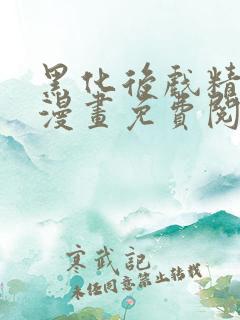 黑化後戲精
漫畫免費閱
寒武記
未經同意禁止轉載